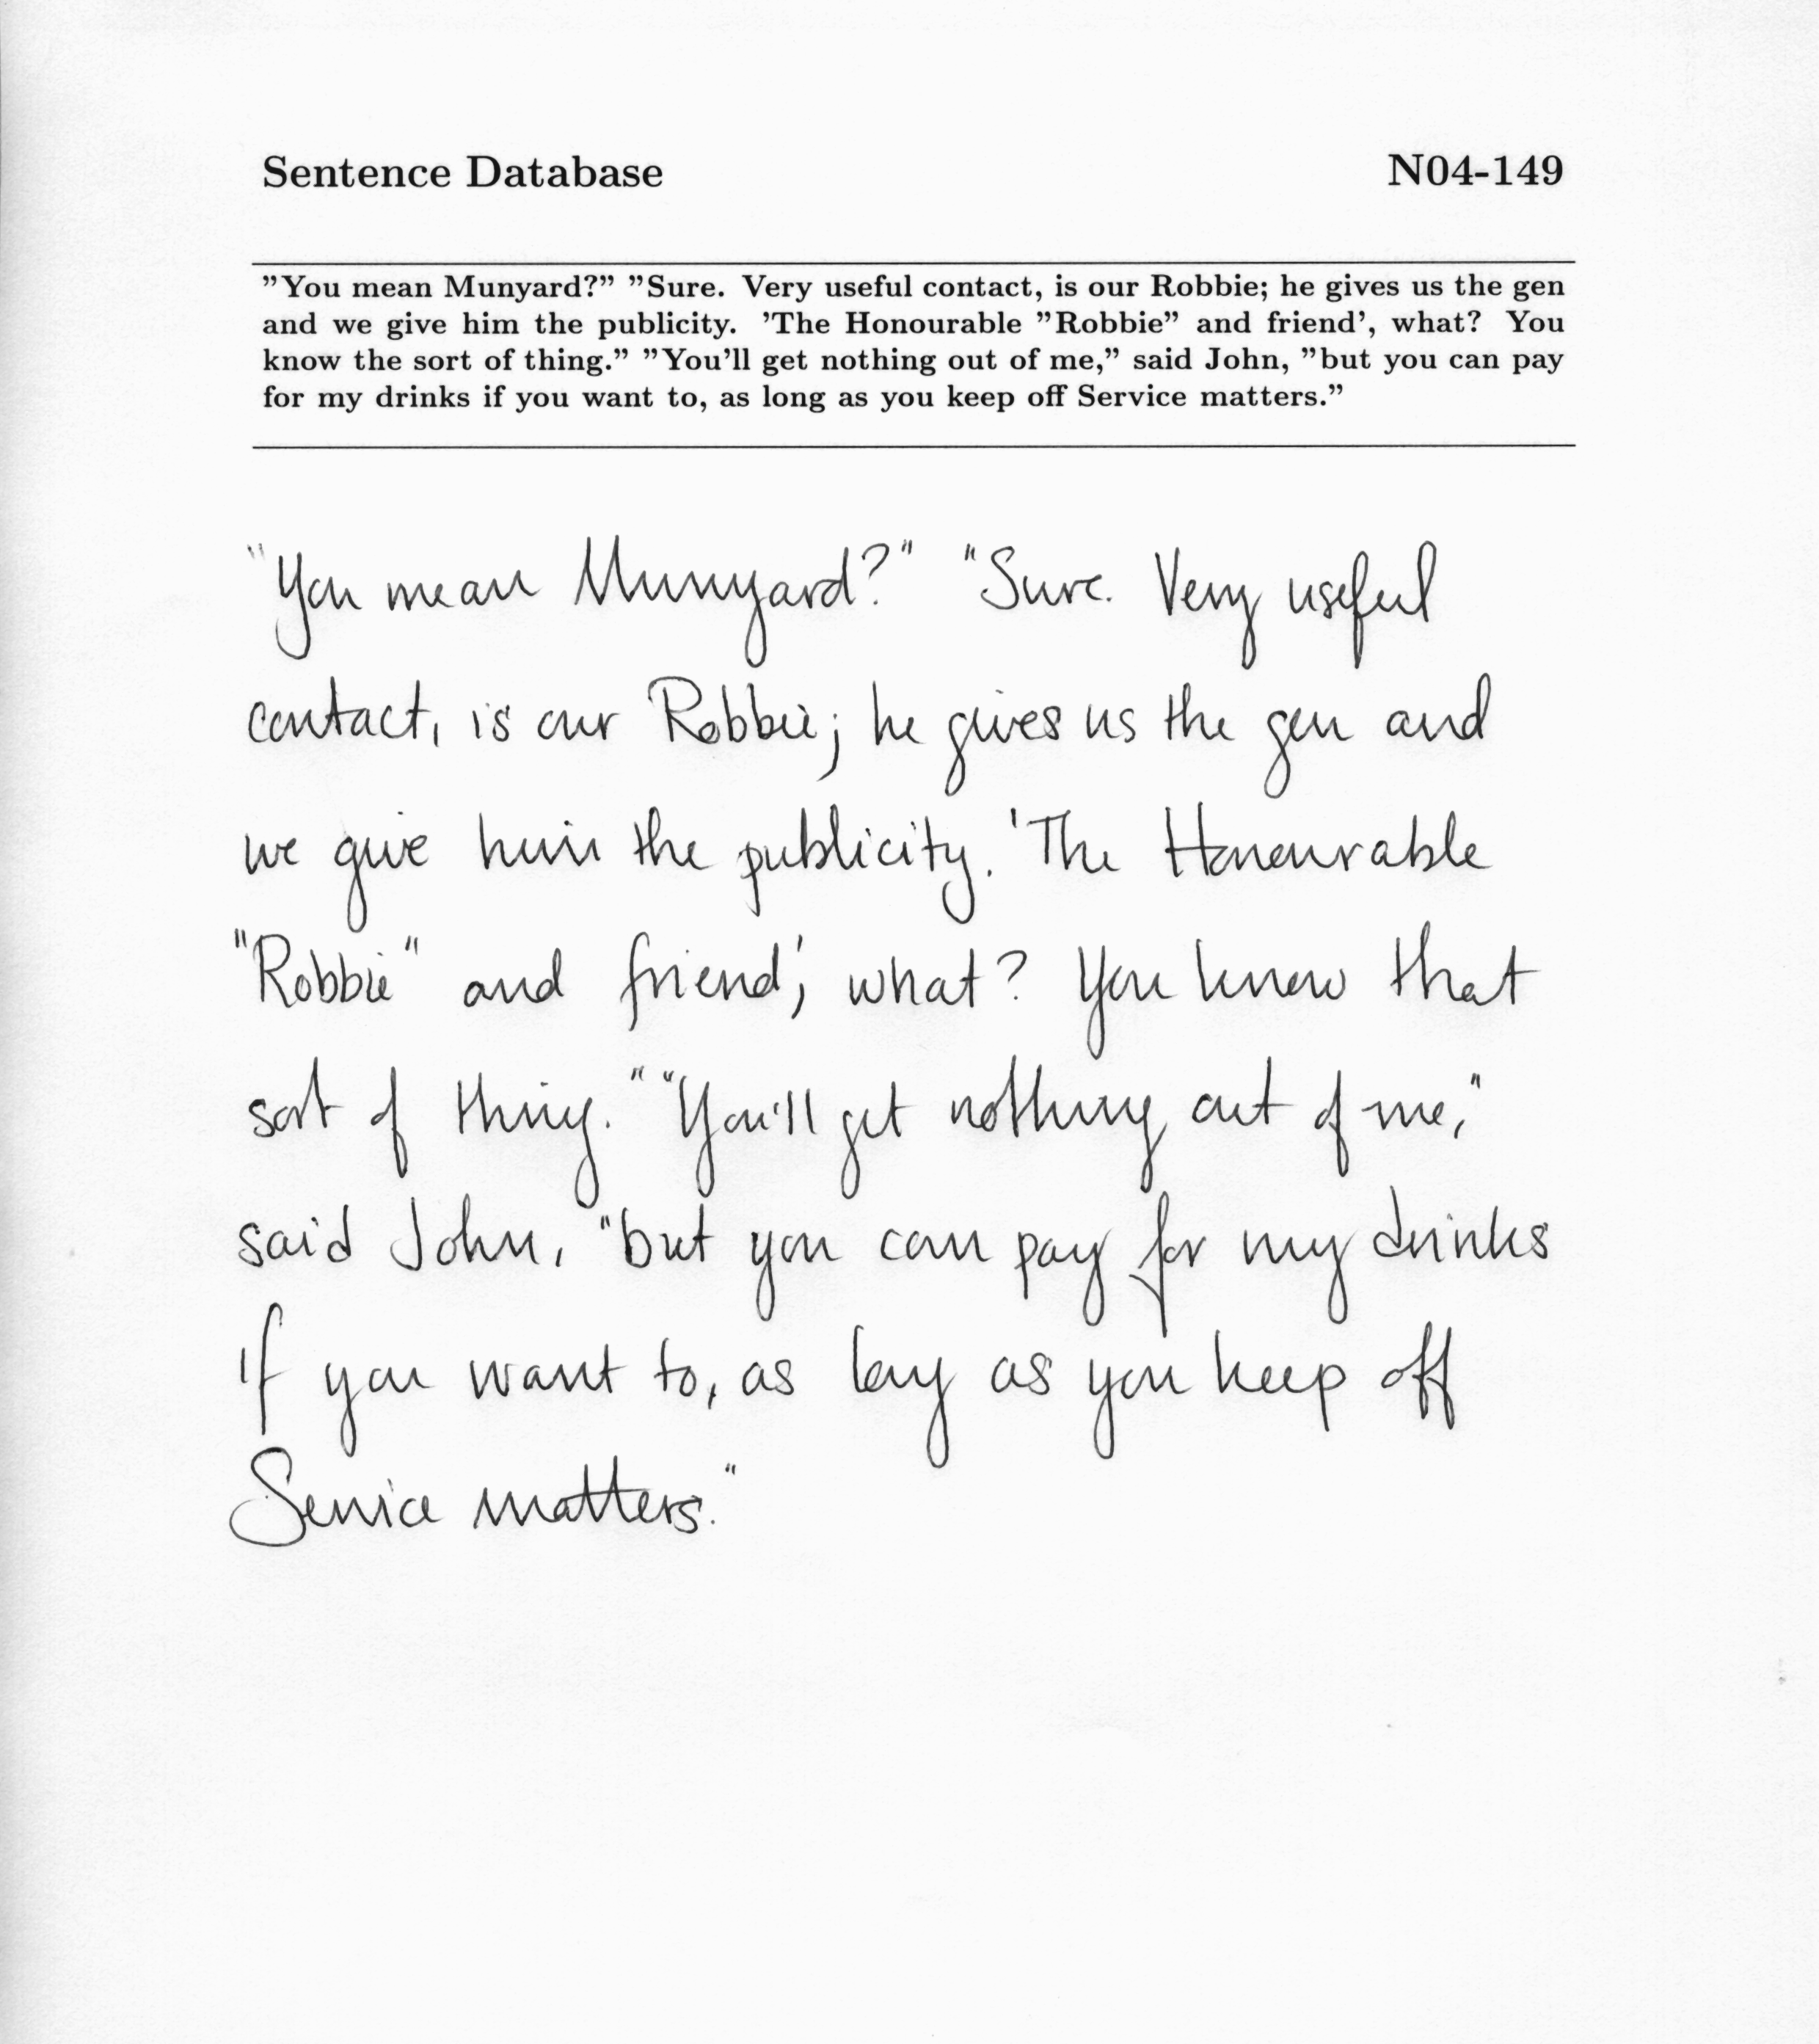 Sentence Database N04-149
”You mean Munyard?” ”Sure. Very useful contact, is our Robbie; he gives us the gen
and we give him the publicity. ’The Honourable ”Robbie” and friend’, what? You
know the sort of thing.” ”You’ll get nothing out of me,” said John, ”but you can pay
for my drinks if you want to, as long as you keep off Service matters.”
"You mean Munyard?" "Sure. Very useful
contact, is our Robbie; he gives us the gen and
we give him the publicity. 'The Honourable
"Robbie" and friend', what? You know that
sort of thing." "You'll get nothing out of me,"
said John, "but you can pay for my drinks
if you want to, as long as you keep off
Service matters."